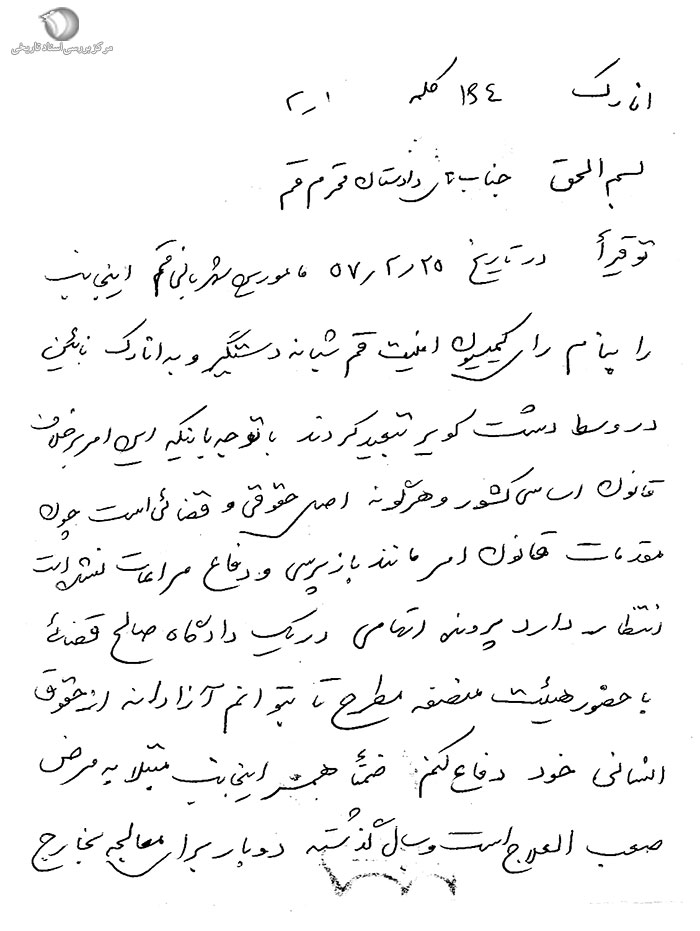 مرکز بررسی اسناد تاریخی
انارک ۱۹۴ کلمه
بسم الحق جناب دادستان محترم قم
توقیراً در تاریخ ۵۷/۲/۲۵ مامورین شهربانی قم اینجانب
را بنام رای کمیسیون امنیت قم شبانه دستگیر و به انارک نائین
در وسط دشت کویر تبعید کردند با توجه باینکه این امر برخلاف
قانون اساسی کشور و هرگونه اصل حقوقی و قضائی است چون
مقدمات قانون امر مانند بازپرسی و دفاع مراعات نشده است
انتظار دارد پرونده اتهامی در یک دادگاه صالح قضائی
با حضور هیئت منصفه مطرح تا بتوانم آزادانه از حقوق
انسانی خود دفاع کنم. ضمناً همسر اینجانب مبتلا به مرض
صعب العلاج است و سال گذشته دوبار برای معالجه بخارج